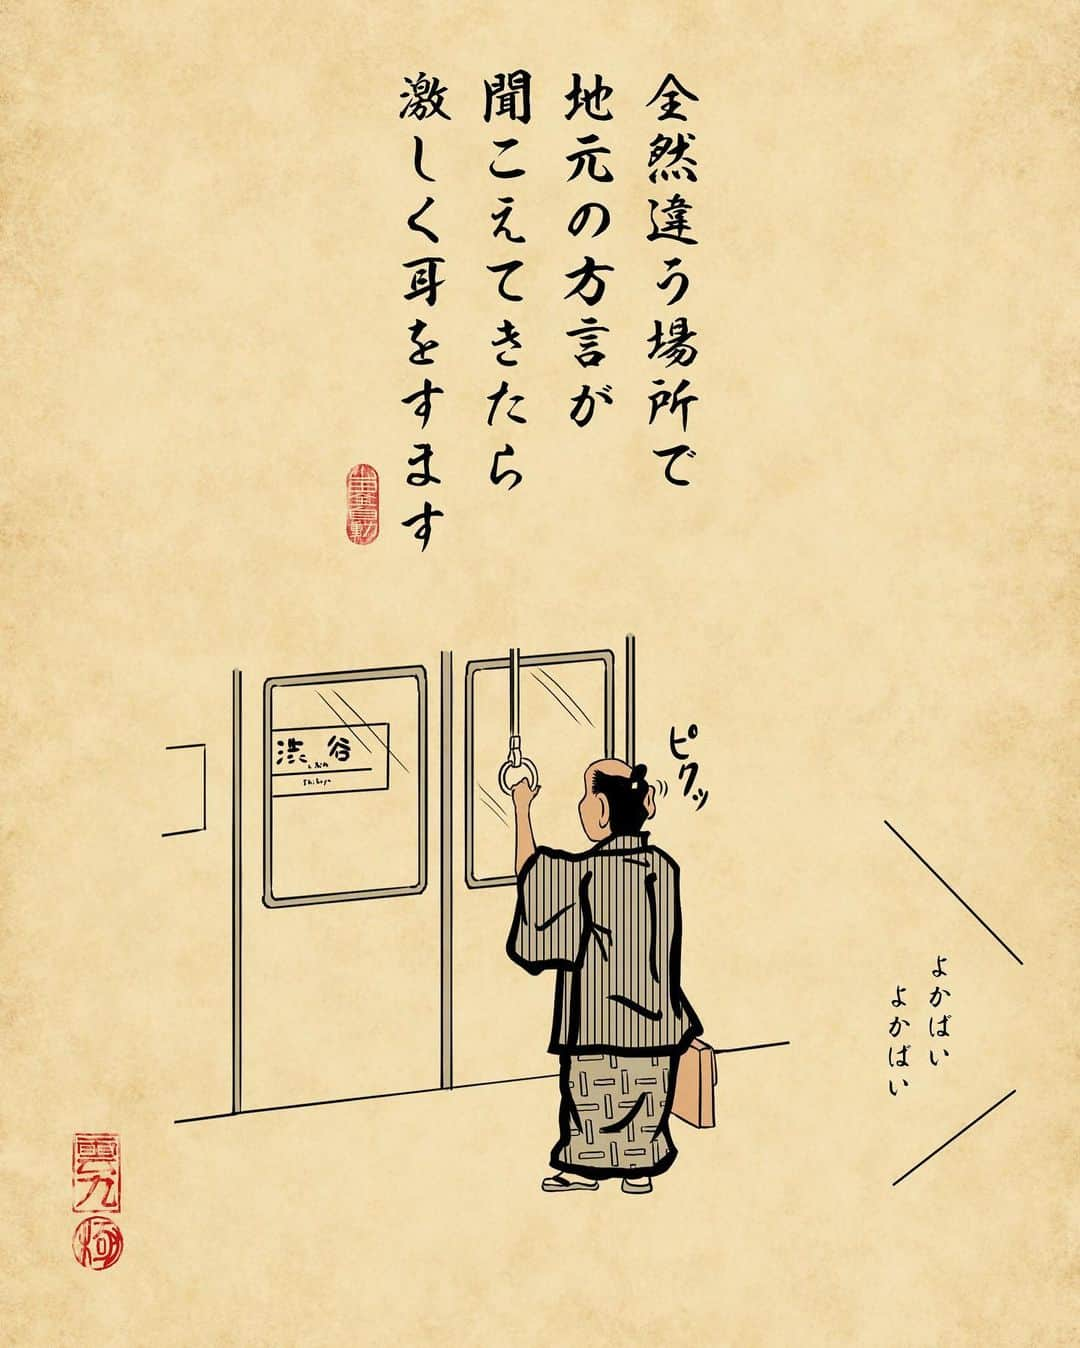 全然違う場所で
地元の方言が
聞こえてきたら
激しく耳をすます
渋谷
しぶや
Shibuya
ピクッ
よかばい
よかばい